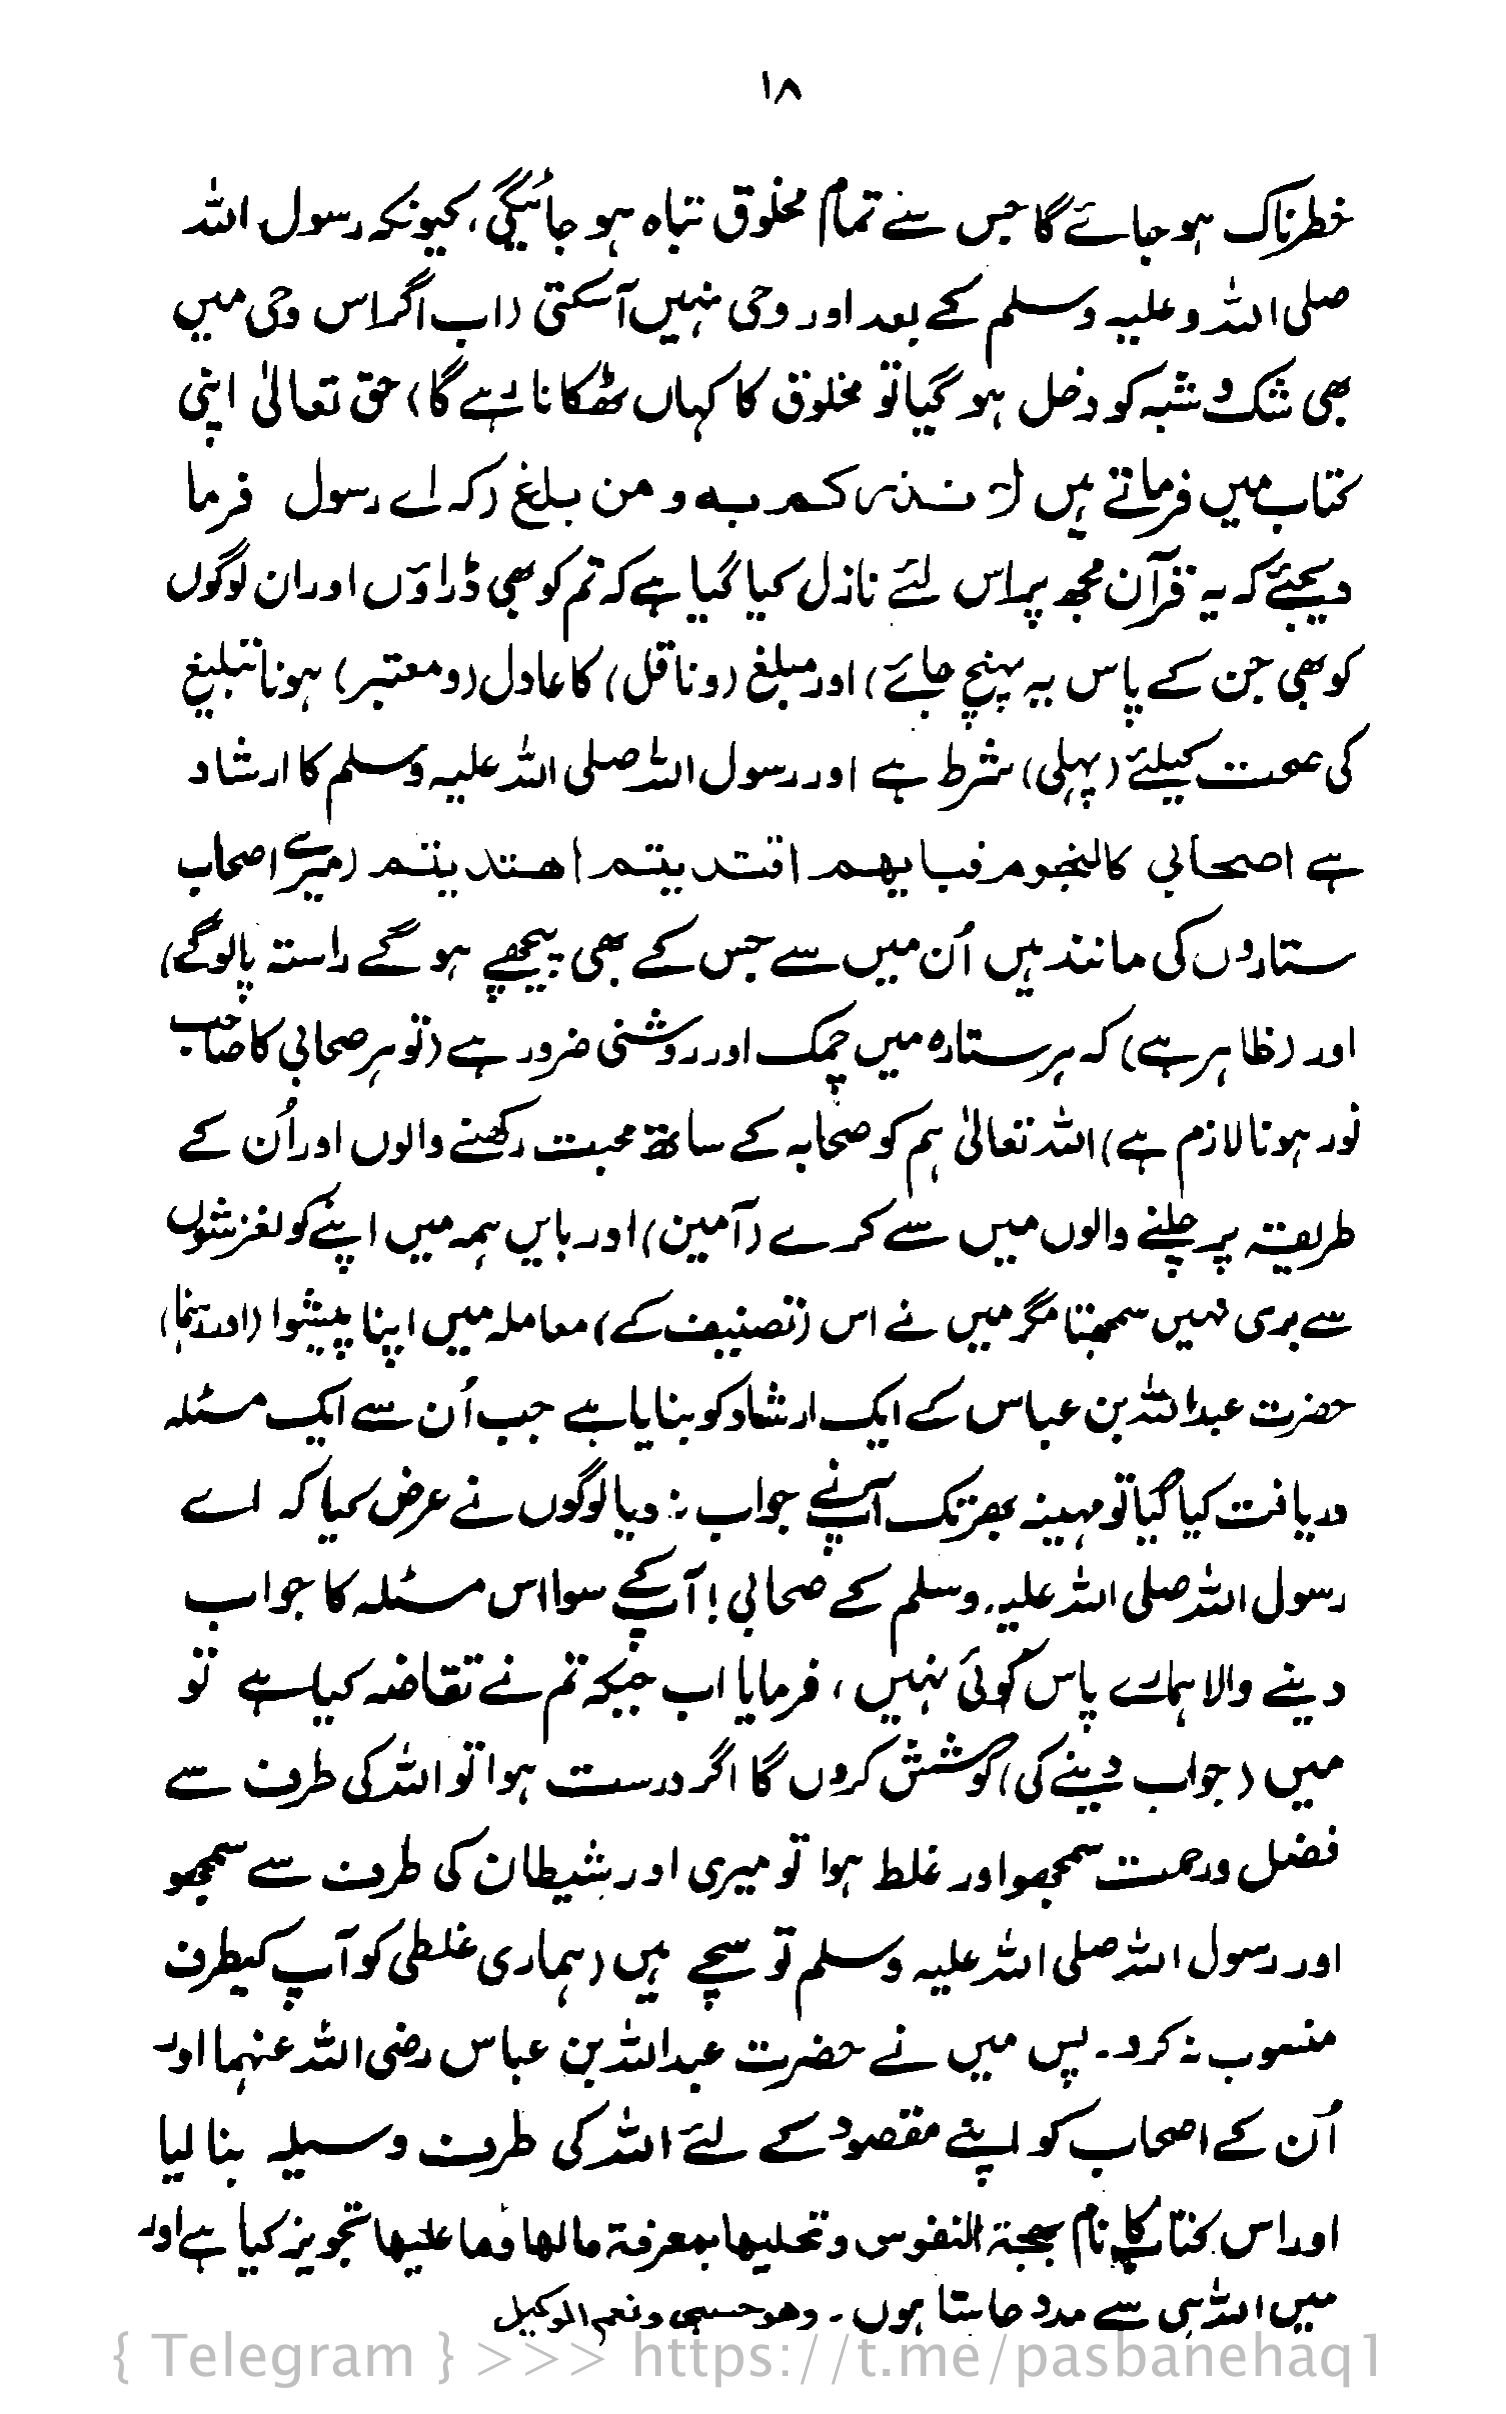 ۱۸
خطرناک ہوجائے گا جس سے تمام مخلوق تباہ ہو جائیگی، کیونکہ رسول اللہ
صلی اللہ و علیہ وسلم کے بعد اور وحی نہیں آسکتی (اب اگر اس وحی میں
بھی شک و شبہ کو دخل ہو گیا تو مخلوق کا کہاں ٹھکانا رہے گا) حق تعالیٰ اپنی
کتاب میں فرماتے ہیں لانذرکم بہ و من بلغ (کہ اے رسول فرما
دیجئے کہ یہ قرآن مجھ پر اس لئے نازل کیا گیا ہے کہ تم کو بھی ڈراؤں اور ان لوگوں
کو بھی جن کے پاس یہ پہنچ جائے) اور مبلغ (و ناقل) کا عادل (و معتبر) ہونا تبلیغ
کی صحت کیلئے (پہلی) شرط ہے اور رسول اللہ صلی اللہ علیہ وسلم کا ارشاد
ہے اصحابی کالنجوم فبایھم اقتدیتم اھتدیتم (میرے اصحاب
ستاروں کی مانند ہیں اُن میں سے جس کے بھی پیچھے ہو گے راستہ پالوگے)
اور (ظاہر ہے) کہ ہر ستارہ میں چمک اور روشنی ضرور ہے (تو ہر صحابی کا صاحب
نور ہونا لازم ہے) اللہ تعالیٰ ہم کو صحابہ کے ساتھ محبت رکھنے والوں اور اُن کے
طریقہ پر چلنے والوں میں سے کرے (آمین) اور بایں ہمہ میں اپنے کو لغزشوں
سے بری نہیں سمجھتا مگر میں نے اس (تصنیف کے) معاملہ میں اپنا پیشوا (اور رہنما)
حضرت عبداللہ بن عباس کے ایک ارشاد کو بنایا ہے جب اُن سے ایک مسئلہ
دریافت کیا گیا تو مہینہ بھر تک آپنے جواب نہ دیا لوگوں نے عرض کیا کہ اے
رسول اللہ صلی اللہ علیہ وسلم کے صحابی! آپکے سوا اس مسئلہ کا جواب
دینے والا ہمارے پاس کوئی نہیں، فرمایا اب جبکہ تم نے تقاضہ کیا ہے تو
میں (جواب دینے کی) کوشش کروں گا اگر درست ہوا تو اللہ کی طرف سے
فضل و رحمت سمجھو اور غلط ہوا تو میری اور شیطان کی طرف سے سمجھو
اور رسول اللہ صلی اللہ علیہ وسلم تو سچے ہیں (ہماری غلطی کو آپ کیطرف
منسوب نہ کرو۔ پس میں نے حضرت عبداللہ بن عباس رضی اللہ عنہما اور
اُن کے اصحاب کو اپنے مقصود کے لئے اللہ کی طرف وسیلہ بنا لیا
اور اس کتاب کا نام بہجۃ النفوس و تحلیھا بمعرفۃ مالھا وما علیھا تجویز کیا ہے اور
میں اللہ ہی سے مدد چاہتا ہوں۔ وھو حسبی و نعم الوکیل
{ Telegram } >>> https://t.me/pasbanehaq1